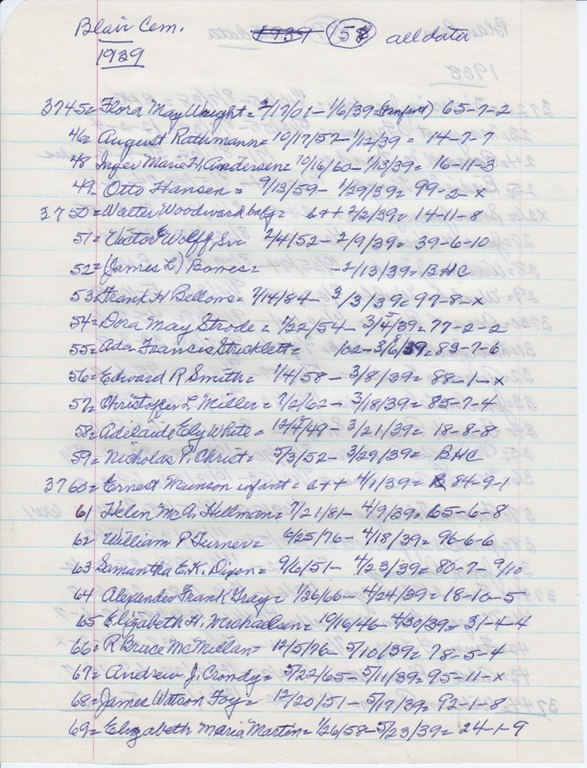 Blair Cem. 1939 158 all data
1939
3745= Flora May Waught= 2/17/01-1/6/39= (Sanford) 65-7-2
46= August Rathmann= 10/17/57-1/12/39= 14-7-7
48 Inger Marie H. Andersen= 10/16/60-1/13/39= 16-11-3
49 Otto Hansen= 9/13/59-1/29/39= 99-2-x
3750= Walter Woodward baby= 6++ 2/2/39= 14-11-8
51= Victor Wolff, Sr= 2/4/52-2/9/39= 39-6-10
52= (James L) Bones= -2/13/39= BHC
53= Frank H Bellons= 7/14/84-3/3/39= 97-8-x
54= Dora May Strode= 1/22/54-3/4/39= 77-2-2
55= Ada Francis Stricklett= /62-3/6/39= 83-7-6
56= Edward R Smith= 1/4/58-3/8/39= 88-1-x
57= Christoffer L Miller= 7/2/62-3/18/39= 85-7-4
58= Adelaide Ely White= 12/4/49-3/21/39= 18-8-8
59= Nicholas P. Christ= 5/3/52-3/29/39= BHC
3760= Ernest Munson infant= 6++ 4/1/39= 84-9-1
61 Helen McA. Hillman= 7/21/81-4/9/39= 65-6-8
62 William P Turner= 6/25/76-4/18/39= 96-6-6
63 Samantha E.K. Dixon= 9/6/51-4/23/39= 80-7-9/10
64 Alexander Frank Gray= 1/26/66-4/24/39= 18-10-5
65 Elizabeth H. Michaelsen= 10/16/46-4/30/39= 31-4-4
66= R Bruce McMillan= 12/5/76-5/10/39= 78-5-4
67= Andrew J. Crondy= 5/22/65-5/11/39= 95-11-x
68= James Watson Foy= 12/20/51-5/17/39= 92-1-8
69= Elizabeth Maria Martin= 1/26/58-5/23/39= 24-1-9